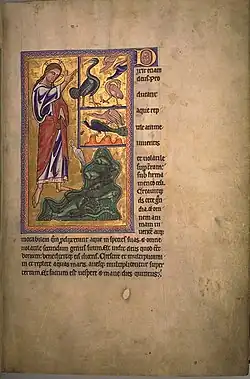 D
ixit etiam
deus. Pro
ducant
aque rep
tile anime
viventis
et volatile
super terram.
sub firma
mento celi.
Creavitq;
deus cete gran
dia. & om
nem ani
mam vi
ventem atq;
motabilem qua produxerant aque in species suas. & omne
volatile secundum genus suum. Et vidit deus quod esset
bonum. benedixitq; eis dicens. Crescite et multiplicamini
et replete aquas maris. avesq; multiplicentur super
terram. Et factum est vespere & mane dies quintus.